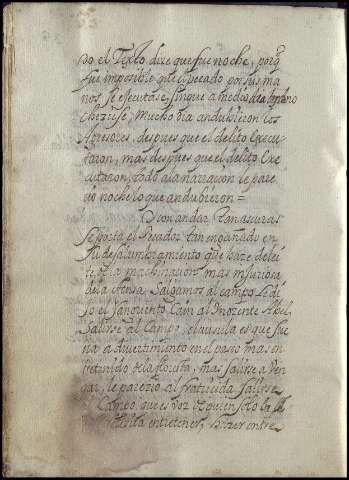 do el Texto dize que fue noche, porq̃
fue imposible que el pecado por sus ma
nos se efecutase, sin que a medio dia
Mucho dia andubieron los
Agresores, despues que el delito Execu-
taron, mas despues que el delito Exe
cutaron, todo a la narracion le pare
cio noche lo que andubieron =
andar, Tan a scuras
se porta el Pecador tan engañado en
su deslumbramento que haze delei
te a machinacion mas injuriosa
que la Afensa, Salgamos al campo le di
jo el sangriento Cain al Inocente Abel,
Salirse al Campo, clausula es que sue
na a divertimiento en el paseo mas en
tretenido de la floresta, mas salirse a Ven
gar, le parezio al fratricida Salirse
Campo, que es voz de quien solo la
entretener, dizer entre